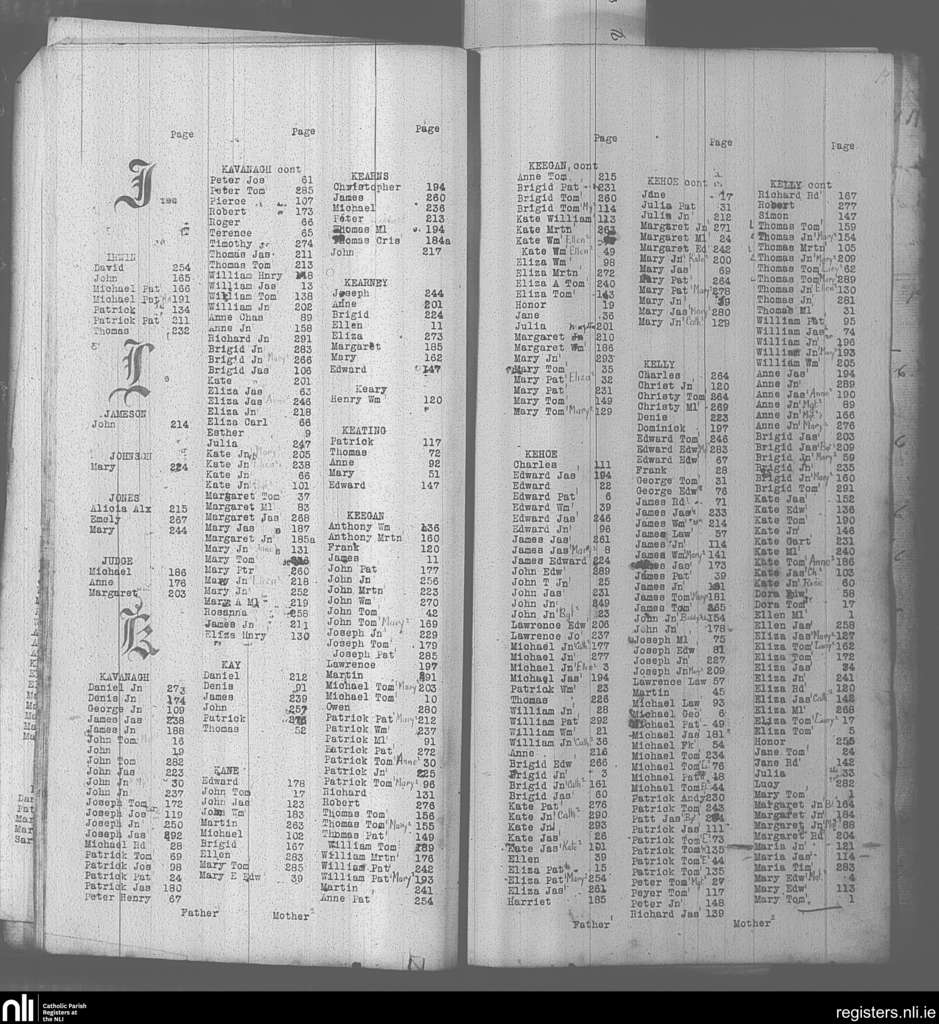 Page
I
IRWIN
David 254
John 165
Michael Pat 166
Michael Pat 191
Patrick 134
Patrick Pat 211
Thomas 232
JAMESON
John 214
JOHNSON
Mary 224
JONES
Alicia Alx 215
Emely 267
Mary 244
JUDGE
Michael 186
Anne 176
Margaret 203
K
KAVANAGH
Daniel Jn 273
Denis Jn 174
George Jn 109
James Jas 238
James Jn 188
John Tom 16
John 19
John Tom 282
John Jas 223
John Jn 30
John Jn 237
Joseph Tom 172
Joseph Jos 119
Joseph Jn 250
Joseph Jas 292
Michael Rd 28
Patrick Tom 69
Patrick Jos 98
Patrick Pat 24
Patrick Jas 180
Peter Henry 67
Page
KAVANAGH cont
Peter Jos 61
Peter Tom 285
Pierce 107
Robert 173
Roger 66
Terence 65
Timothy 274
Thomas Jas 211
Thomas Tom 213
William Hnry 148
William Jas 13
William Tom 138
William Jn 202
Anne Chas 89
Anne Jn 158
Richard Jn 291
Brigid Jn 283
Brigid Jn Mary 266
Brigid Jas 106
Kate 201
Eliza Jas 63
Eliza Jas Anne 246
Eliza Jn 218
Eliza Carl 66
Esther 9
Julia 247
Kate Jn Mary 205
Kate Jn 238
Kate Jn 66
Kate Jn 101
Margaret Tom 37
Margaret Ml 83
Margaret Jas 268
Mary Jas 187
Margaret Jn 185a
Mary Jn 131
Mary Tom
Mary Ptr 260
Mary Jn Ellen 218
Mary Jn 252
Mary A Ml 219
Rosanna 258
James Jn 211
Eliza Hnry 130
KAY
Daniel 212
Denis 91
James 239
John 257
Patrick 276
Thomas 52
KANE
Edward 178
John Tom 17
John Jas 123
John Wm 183
Martin 263
Michael 102
Brigid 167
Ellen 283
Mary Tom 285
Mary E Edw 39
Page
KEARNS
Christopher 194
James 260
Michael 236
Peter 213
Thomas Ml 194
Thomas Cris 184a
John 217
KEARNEY
Joseph 244
Anne 201
Brigid 224
Ellen 11
Eliza 273
Margaret 185
Mary 162
Edward 147
Keary
Henry Wm 120
KEATING
Patrick 117
Thomas 72
Anne 92
Mary 51
Edward 147
KEEGAN
Anthony Wm 136
Anthony Mrtn 160
Frank 120
James 11
John Pat 177
John Jn 256
John Mrtn 223
John Wm 270
John Tom 42
John Tom Mary² 169
Joseph Jn 229
Joseph Tom 179
Joseph Pat 285
Lawrence 197
Martin 291
Michael Tom Mary 203
Michael Tom 10
Owen 280
Patrick Pat Mary² 212
Patrick Wm 237
Patrick Ml 91
Patrick Pat 272
Patrick Tom Anne² 30
Patrick Jn 225
Patrick Tom Mary² 96
Richard 131
Robert 276
Thomas Tom 156
Thomas Tom Mary² 155
Thomas Pat 149
William Tom 189
William Mrtn 176
William Pat 242
William Pat Mary² 193
Martin 241
Anne Pat 254
Father
Mother²
Page
KEEGAN, cont
Anne Tom 215
Brigid Pat 231
Brigid Tom 260
Brigid Tom My 114
Kate William 113
Kate Mrtn 263
Kate Wm Ellen
Kate Wm Ellen² 49
Eliza Wm 98
Eliza Mrtn 272
Eliza A Tom 240
Eliza Tom 143
Honor 19
Jane 36
Julia 201
Margaret Jn 210
Margaret Wm 186
Mary Jn 293
Mary Tom 35
Mary Pat Eliza² 32
Mary Pat 231
Mary Tom 149
Mary Tom Mary² 129
KEHOE
Charles 111
Edward Jas 194
Edward 22
Edward Pat 6
Edward Wm 39
Edward Jas 246
Edward Jn 96
James Jas 261
James Jas Mary² 8
James Edward 224
John Edw 289
John T Jn 25
John Jas 231
John Jn 249
John Jn Bgt² 23
Lawrence Edw 206
Lawrence Jo 237
Michael Jn Cath² 177
Michael Jn 277
Michael Jn 3
Michael Jas 194
Patrick Wm 23
Thomas 226
William Jn 28
William Pat 292
William Wm 21
William Jn Cath² 36
Anne 216
Brigid Edw 266
Brigid Jn 3
Brigid Jn Cath² 161
Brigid Jas 60
Kate Pat 276
Kate Jn Cath² 290
Kate Jn 293
Kate Jas 26
Kate Jas Kate² 191
Ellen 39
Eliza Pat 15
Eliza Pat Mary² 254
Eliza Jas 261
Harriet 185
Page
KEHOE cont
Jane 17
Julia Pat 31
Julia Jn 212
Margaret Jn 271
Margaret Ml 24
Margaret Ed 242
Mary Jn Kate² 200
Mary Jas 69
Mary Pat 264
Mary Pat Mary² 278
Mary Jn
Mary Jas Mary² 280
Mary Jn Cath² 129
KELLY
Charles 264
Christ Jn 120
Christy Tom 264
Christy Ml 269
Denis 223
Dominick 197
Edward Tom 246
Edward Edw 283
Edward Edw 67
Frank 28
George Tom 31
George Edw 76
James Rd 71
James Jas 233
James Wm 214
James Law 57
James Jn 114
James Wm Mary² 141
James Jas 173
James Pat 39
James Jn
James Tom Mary 181
James Tom 265
John Jn 154
John Jn 178
Joseph Ml 75
Joseph Edw 81
Joseph Jn 227
Joseph Jn Mary² 209
Lawrence Law 57
Martin 45
Michael Law 93
Michael Geo 6
Michael Pat 49
Michael Jas 181
Michael Fk 54
Michael Tom 234
Michael Tom 76
Michael Pat 18
Michael Tom 44
Patrick Andy 230
Patrick Tom 243
Patt Jas
Patrick Jas 111
Patrick Tom E² 73
Patrick Tom 135
Patrick Tom E² 44
Patrick Tom 135
Peter Tom Mgt² 27
Peyer Tom 117
Peter Jn 148
Richard Jas 139
Page
KELLY cont
Richard Rd 167
Robert 277
Simon 147
Thomas Tom 159
Thomas Jn Mary² 154
Thomas Tom 105
Thomas Jn Mary² 209
Thomas Tom 62
Thomas Tom Mary 289
Thomas Jn Ellen² 130
Thomas Jn 281
Thomas Ml 31
William Pat 95
William Jas 74
William Jn 196
William Jn Mary² 193
William Wm 205
Anne Jas 194
Anne Jn 289
Anne Jas Anne² 190
Anne Jn Mgt² 89
Anne Jn Mgt² 166
Anne Jn Mary² 276
Brigid Jas 203
Brigid Jas 209
Brigid Jn Mary² 59
Brigid Jn 235
Brigid Jn Mary² 160
Brigid Tom 291
Kate Jas 152
Kate Edw 136
Kate Tom 190
Kate Jn 146
Kate Gart 231
Kate Ml 240
Kate Tom Anne² 186
Kate Jas Ch² 103
Kate Jn Rose 60
Dora Edw 58
Dora Tom 17
Ellen Ml 1
Ellen Jas 258
Eliza Jas Mary² 127
Eliza Tom 162
Eliza Tom 172
Eliza Jas 34
Eliza Jn 241
Eliza Rd 120
Eliza Jas Cath² 142
Eliza Ml 268
Eliza Tom 17
Eliza Tom 5
Honor 255
Jane Tom 24
Jane Rd 142
Julia 33
Lucy 282
Mary Tom 1
Margaret Jn 164
Margaret Jn 184
Margaret Jn 88
Margaret Rd 204
Maria Jn 121
Maria Jas 114
Maria Tim 283
Mary Edw Mgt² 4
Mary Edw 113
Mary Tom 1
Father
Mother²
nli
Catholic Parish
Registers at
the NLI
registers.nli.ie